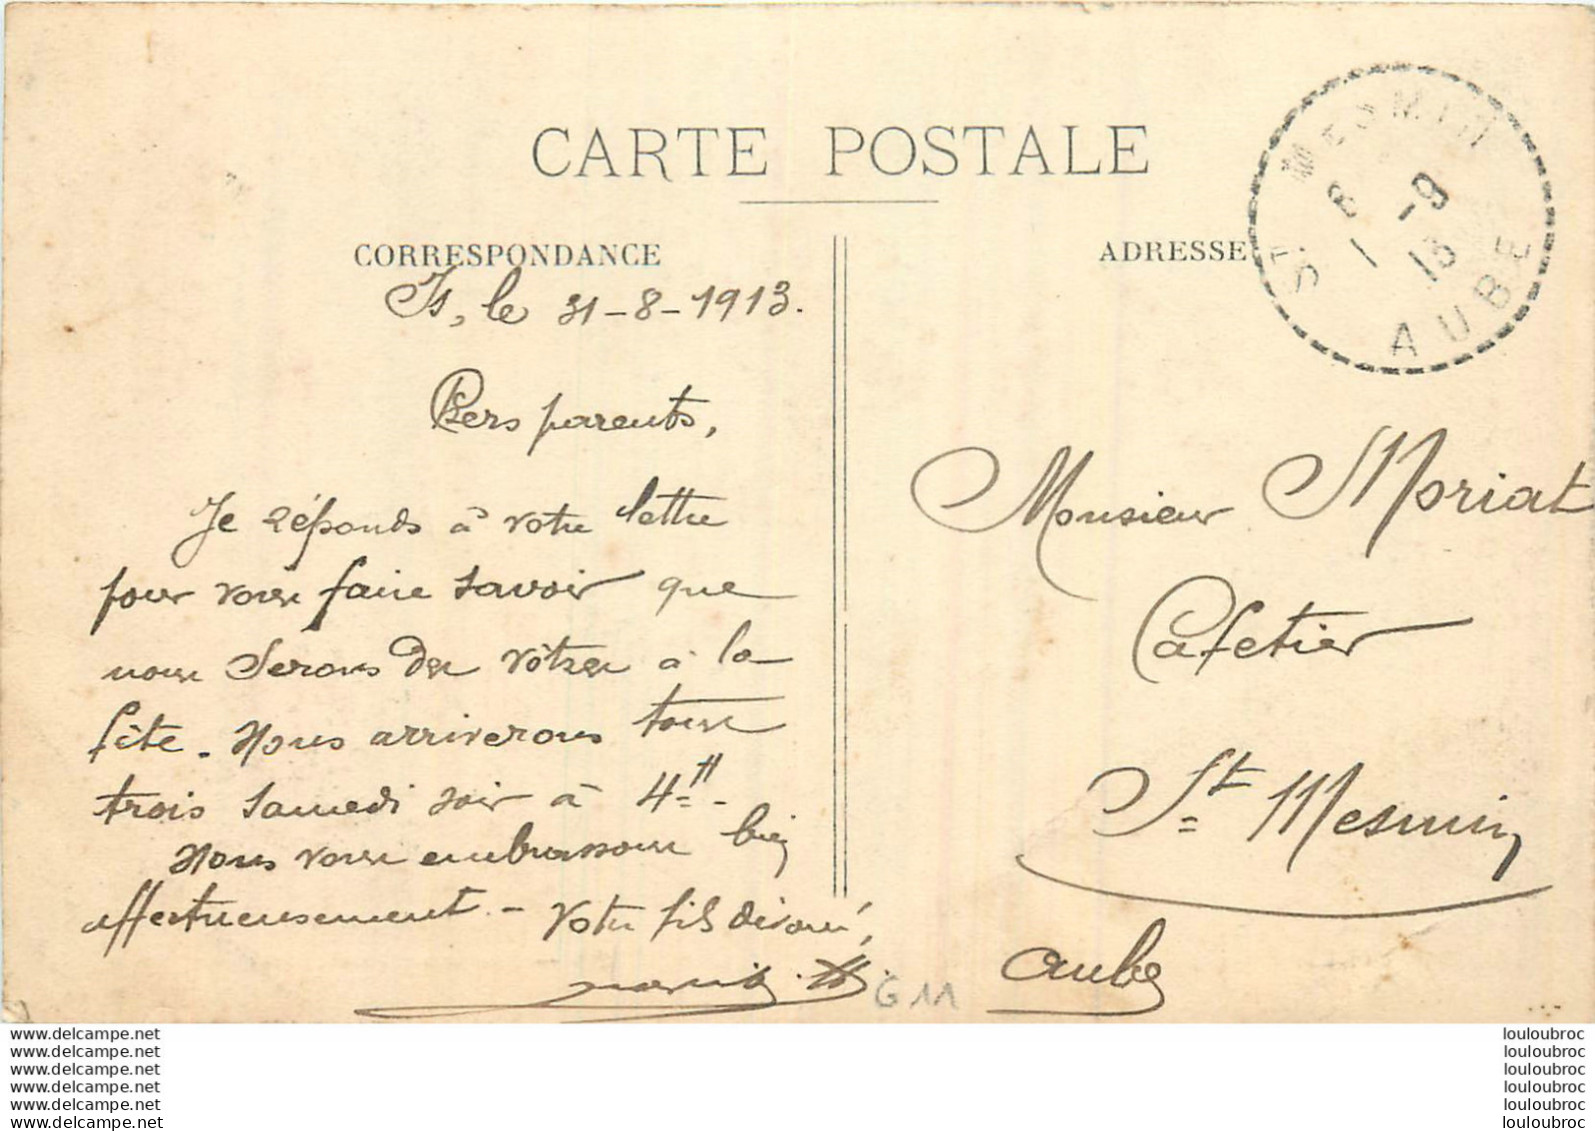 CARTE POSTALE
CORRESPONDANCE
Is, le 31-8-1913.
Chers parents,
Je réponds à votre lettre
pour vous faire savoir que
nous serons des vôtres à la
fête. Nous arriverons tous
trois samedi soir à 4H.
Nous vous embrassons bien
affectueusement - Votre fils dévoué,
G11
ADRESSE
ST MESMIN
8
1 -9
13
AUBE
Monsieur Moriat
Cafetier
St Mesmin
Aube
www.delcampe.net
www.delcampe.net
www.delcampe.net
www.delcampe.net
www.delcampe.net
www.delcampe.net
louloubroc
louloubroc
louloubroc
louloubroc
louloubroc
louloubroc